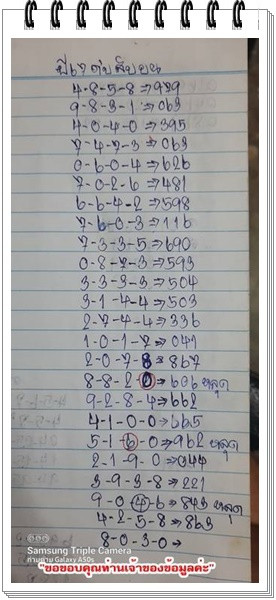 4-8-5-8⇒929
9-8-3-1⇒063
4-0-4-0⇒395
7-4-7-3⇒063
0-6-0-4⇒626
7-0-2-6⇒481
6-6-4-2⇒598
7-6-0-3⇒116
7-3-3-5⇒690
0-8-7-3⇒593
3-3-3-3⇒504
3-1-4-4⇒503
2-7-4-4⇒336
1-0-1-7⇒041
2-0-7-8⇒867
8-8-2-0⇒606 หลุด
9-2-8-4⇒662
4-1-0-0⇒665
5-1-6-0⇒962 หลุด
2-1-9-0⇒044
3-9-3-8⇒221
9-0-4-6⇒843 หลุด
4-2-5-8⇒863
8-0-3-0⇒
Samsung Triple Camera
ถ่ายด้วย Galaxy A50s
"ขอขอบคุณท่านเจ้าของข้อมูลค่ะ"